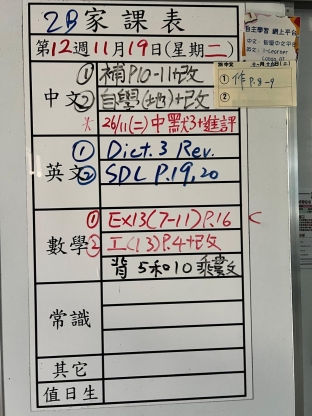 2B 家課表
第12週11月19日(星期二)
中文
① 補P.10-11+改
② 自學(地)+改
* 26/11(二)中默3+進評
英文
① Dict. 3 Rev.
② SDL P.19,20
數學
① EX13(7-11)P.16
② 工(13)P.4+改
背 5和10 乘數
常識
其它
值日生
自主學習 網上平台
① 作 P.8-9
②